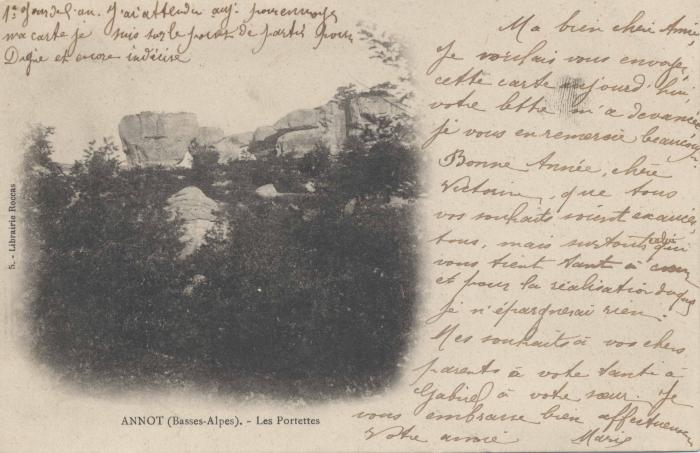 1er jour de l'an. J'ai attendu auj. pour envoyer
ma carte je suis sur le point de partir pour
Digne et encore indécise
Ma bien chère Amie
Je voulais vous envoyer
cette carte aujourd'hui,
votre lettre m'a devancée
je vous en remercie beaucoup
Bonne Année, chère
Victorine, que tous
vos souhaits soient exaucés,
tous, mais surtout celui qui
vous tient tant à cœur
et pour la réalisation duquel
je n'épargnerai rien.
Mes souhaits à vos chers
parents à votre tante à
Gabriel à votre sœur. Je
vous embrasse bien affectueusement
Votre amie Marie
5. - Librairie Roccas
ANNOT (Basses-Alpes). - Les Portettes